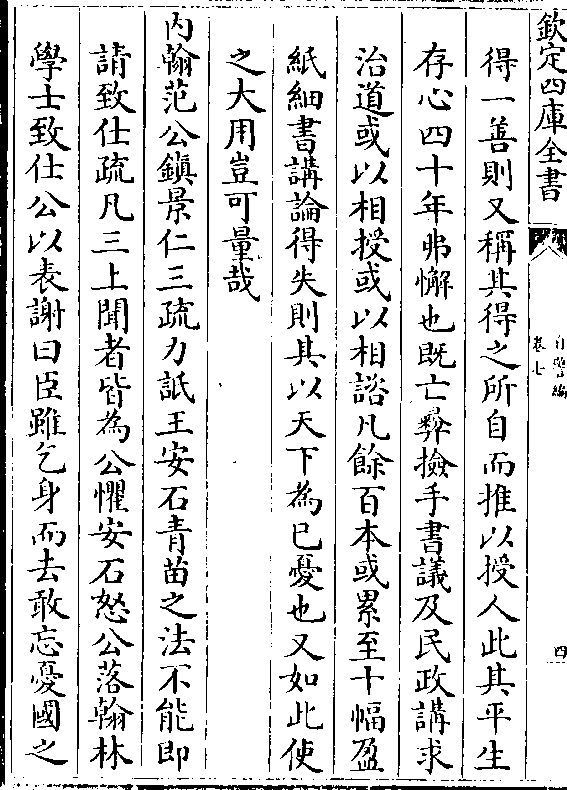 欽定四庫全書
自警編
卷七
四
得一善則又稱其得之所自而推以授人此其平生
存心四十年弗懈也既亡彛撿手書議及民政講求
治道或以相授或以相諮凡餘百本或累至十幅盈
紙細書講論得失則其以天下為已憂也又如此使
之大用豈可量哉
內翰范公鎮景仁三疏力詆王安石青苗之法不能即
請致仕疏凡三上聞者皆為公懼安石怒公落翰林
學士致仕公以表謝曰臣雖乞身而去敢忘憂國之